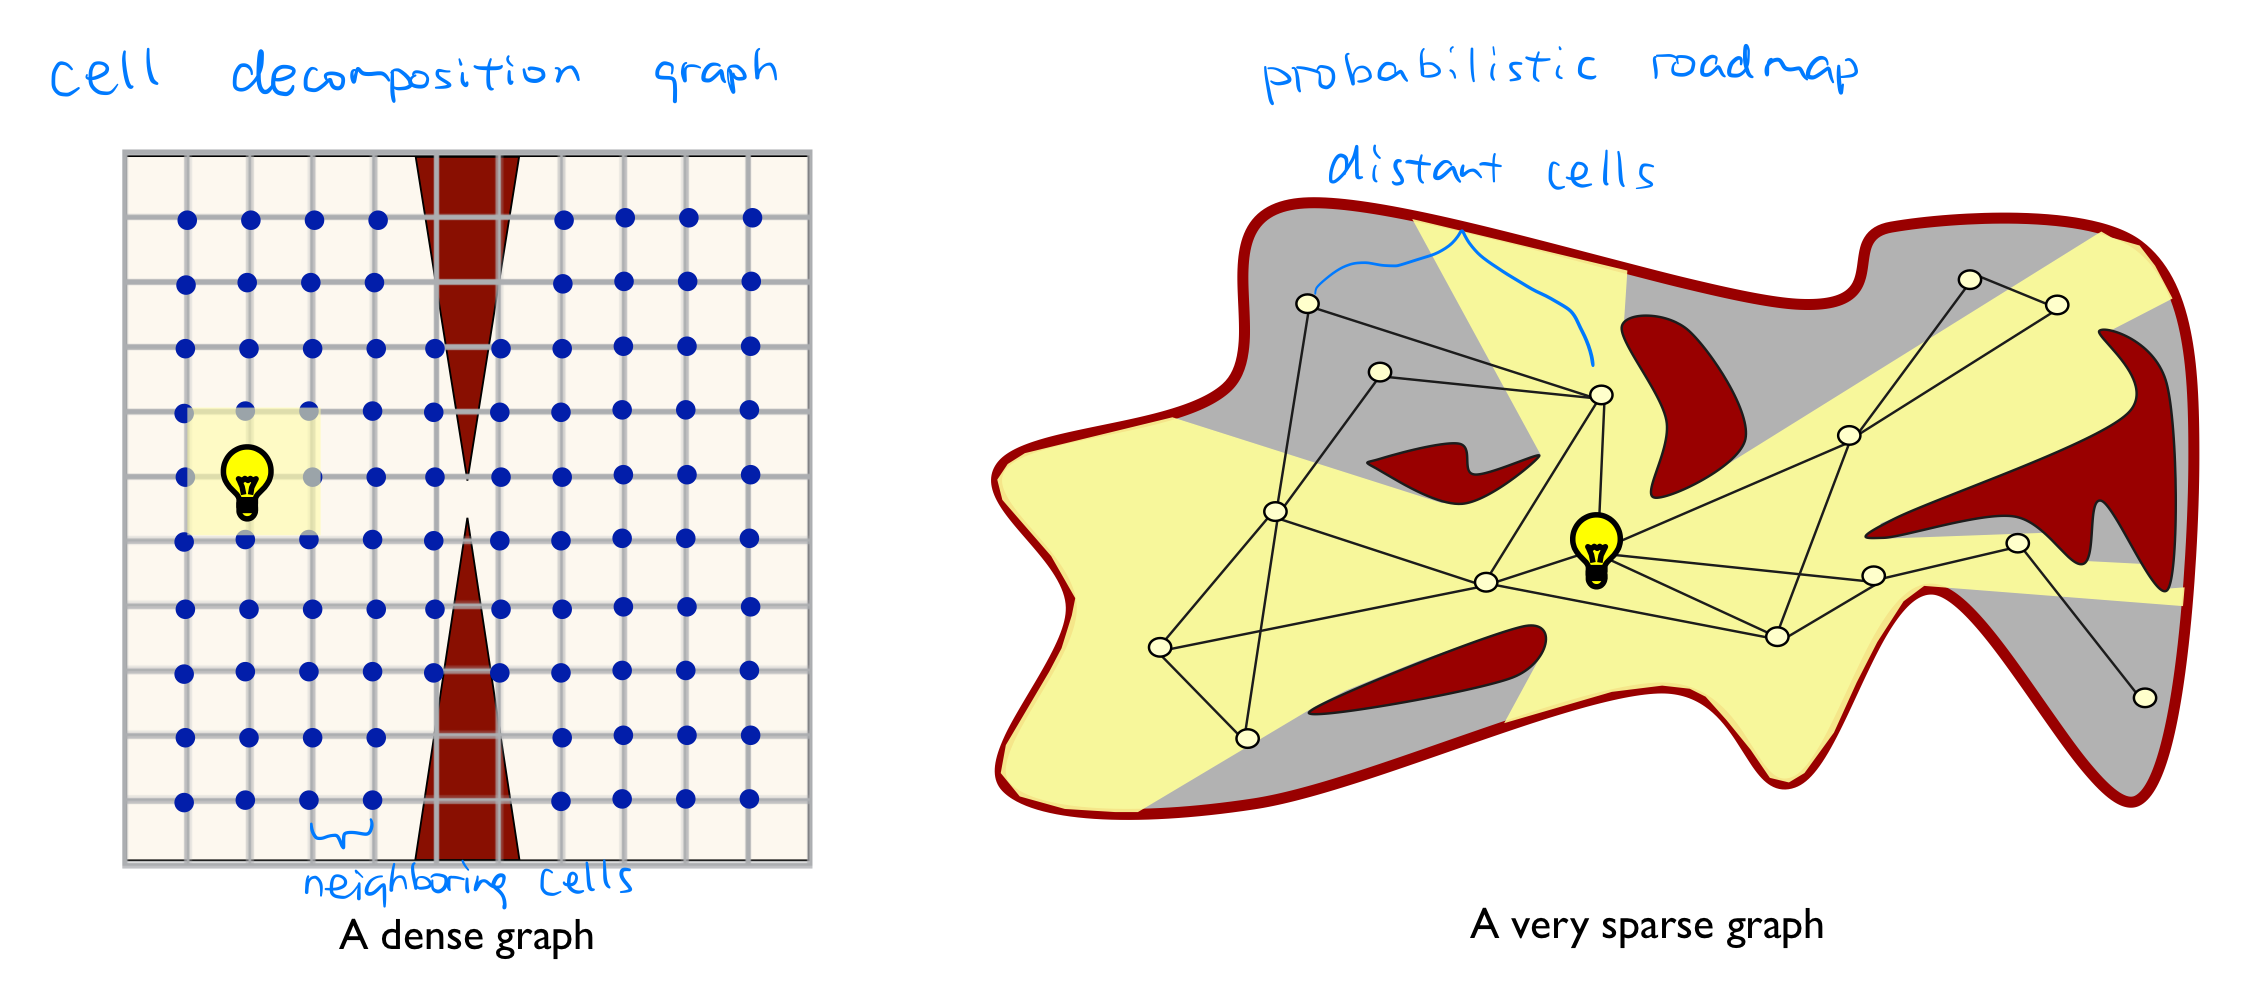 cell decomposition graph
neighboring cells
A dense graph
probabilistic roadmap
distant cells
A very sparse graph